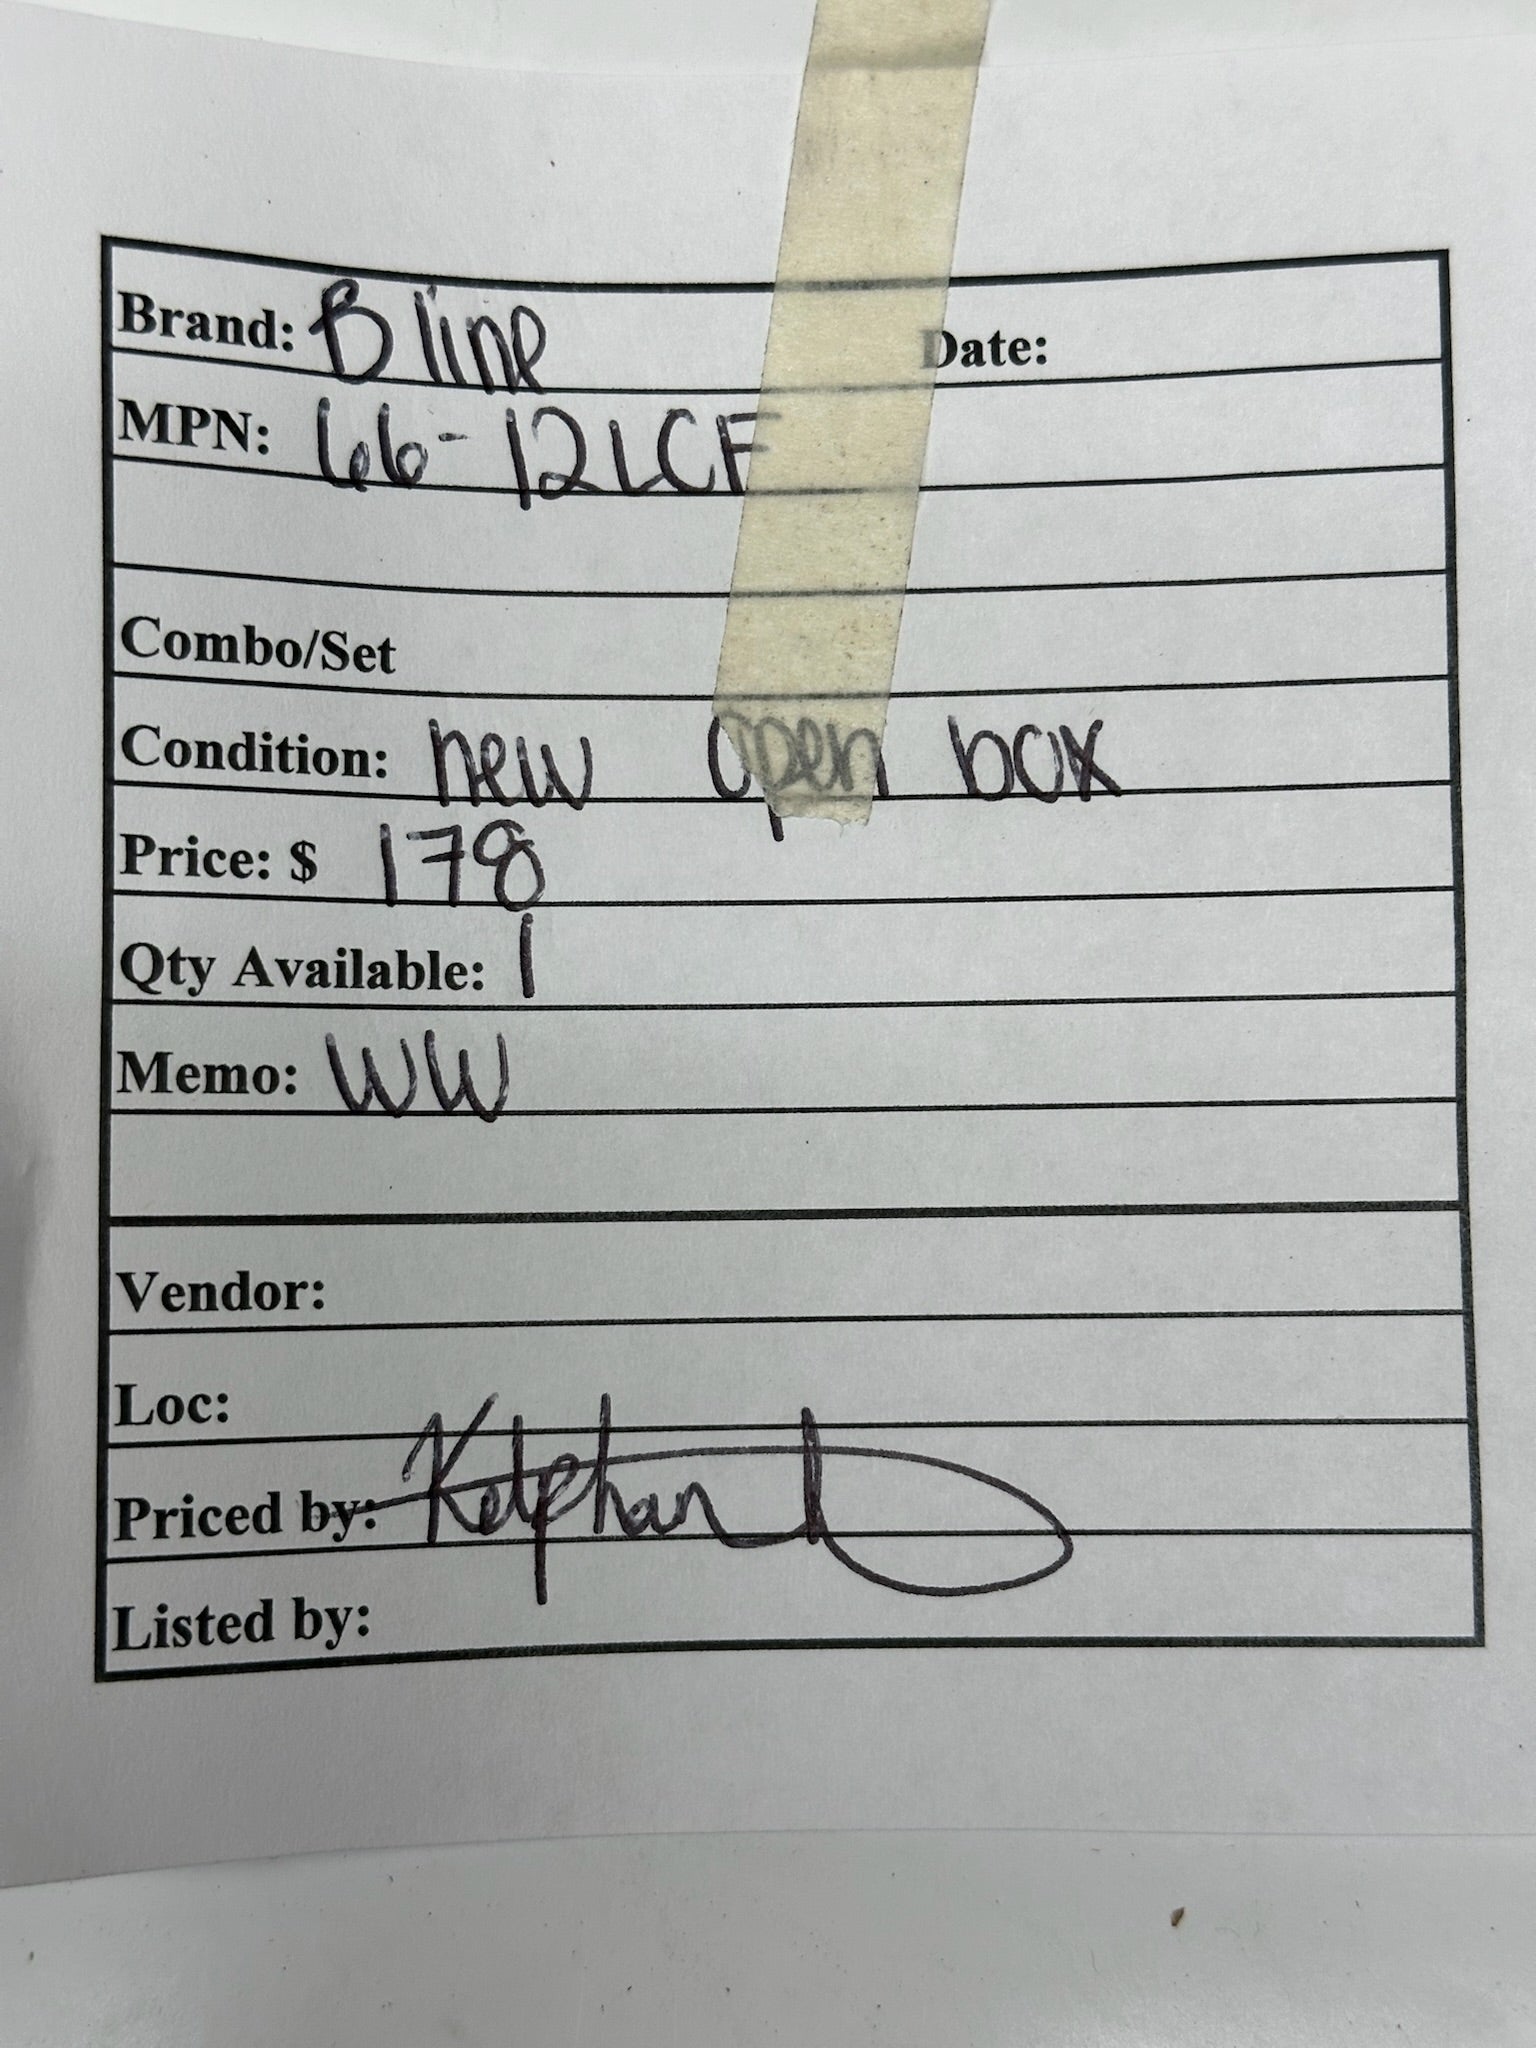 Brand: B line Date:
MPN: 66-12LCF
Combo/Set
Condition: new open box
Price: $ 178
Qty Available: 1
Memo: WW
Vendor:
Loc:
Priced by:
Listed by: